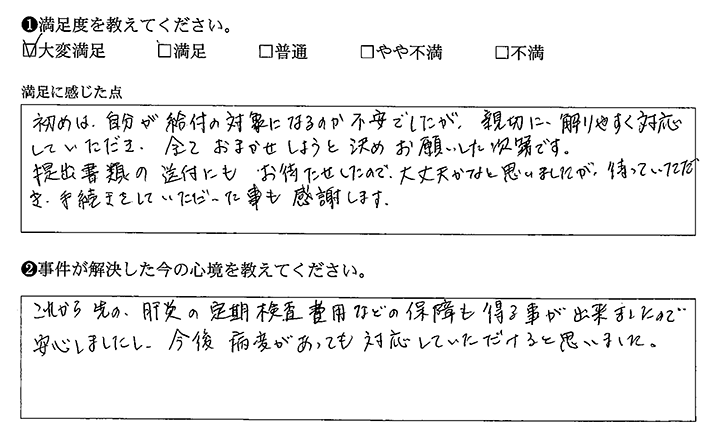 ❶満足度を教えてください。
☑大変満足 □満足 □普通 □やや不満 □不満
満足に感じた点
初めは、自分が給付の対象になるのか不安でしたが、親切に、解りやすく対応
していただき、全ておまかせしようと決めお願いした次第です。
提出書類の送付にもお待たせしたので、大丈夫かなと思いましたが、待っていただ
き、手続きをしていただいた事も感謝します。
❷事件が解決した今の心境を教えてください。
これから先の、肝炎の定期検査費用などの保障も得る事が出来ましたので
安心しましたし、今後病変があっても対応していただけると思いました。